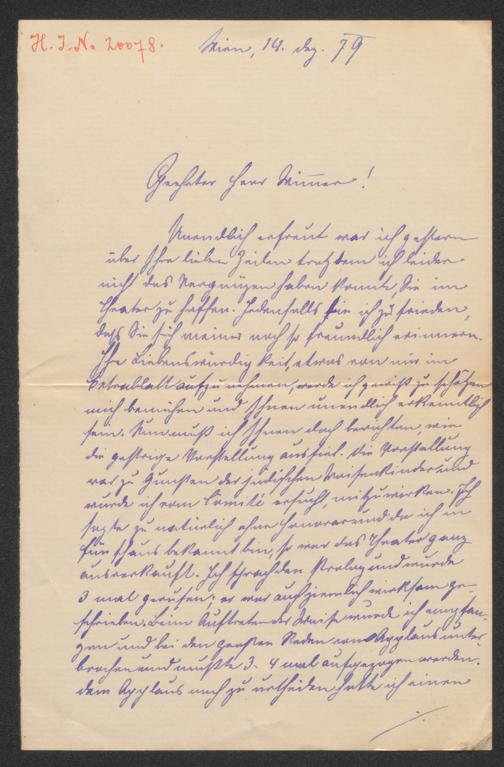 H. I. N. 20078.
Wien, 14. Dez. 79
Geehrter Herr Wimmer!
Unendlich erfreut war ich gestern
über Ihre lieben Zeilen trotzdem ich leider
nicht das Vergnügen haben konnte, Sie im
Theater zu treffen. Jedenfalls bin ich zufrieden,
daß Sie sich meiner noch so freundlich erinnern.
Ihre Liebenswürdigkeit, etwas von mir im
aufzunehmen, werde ich gewiß zu schätzen
mich bemühen und Ihnen unendlich erkenntlich
sein. Nun muß ich Ihnen doch berichten, wie
die gestrige Vorstellung ausfiel. Die Vorstellung
war zu Gunsten der jüdischen Waisenkinder und
wurde ich vom Comité ersucht, mitzuwirken. Ich
sagte zu natürlich ohne Honorar und da ich in
Fünfhaus bekannt bin, so war das Theater ganz
ausverkauft. Ich sprach den Prolog und wurde
3 mal gerufen; er war auch ziemlich wirksam ge-
schrieben. Beim Auftreten der Waise wurde ich empfan-
gen und bei den großen Reden vom Applaus unter-
brochen und mußte 3-4 mal aufgezogen werden.
Dem Applaus nach zu urtheilen hatte ich einen